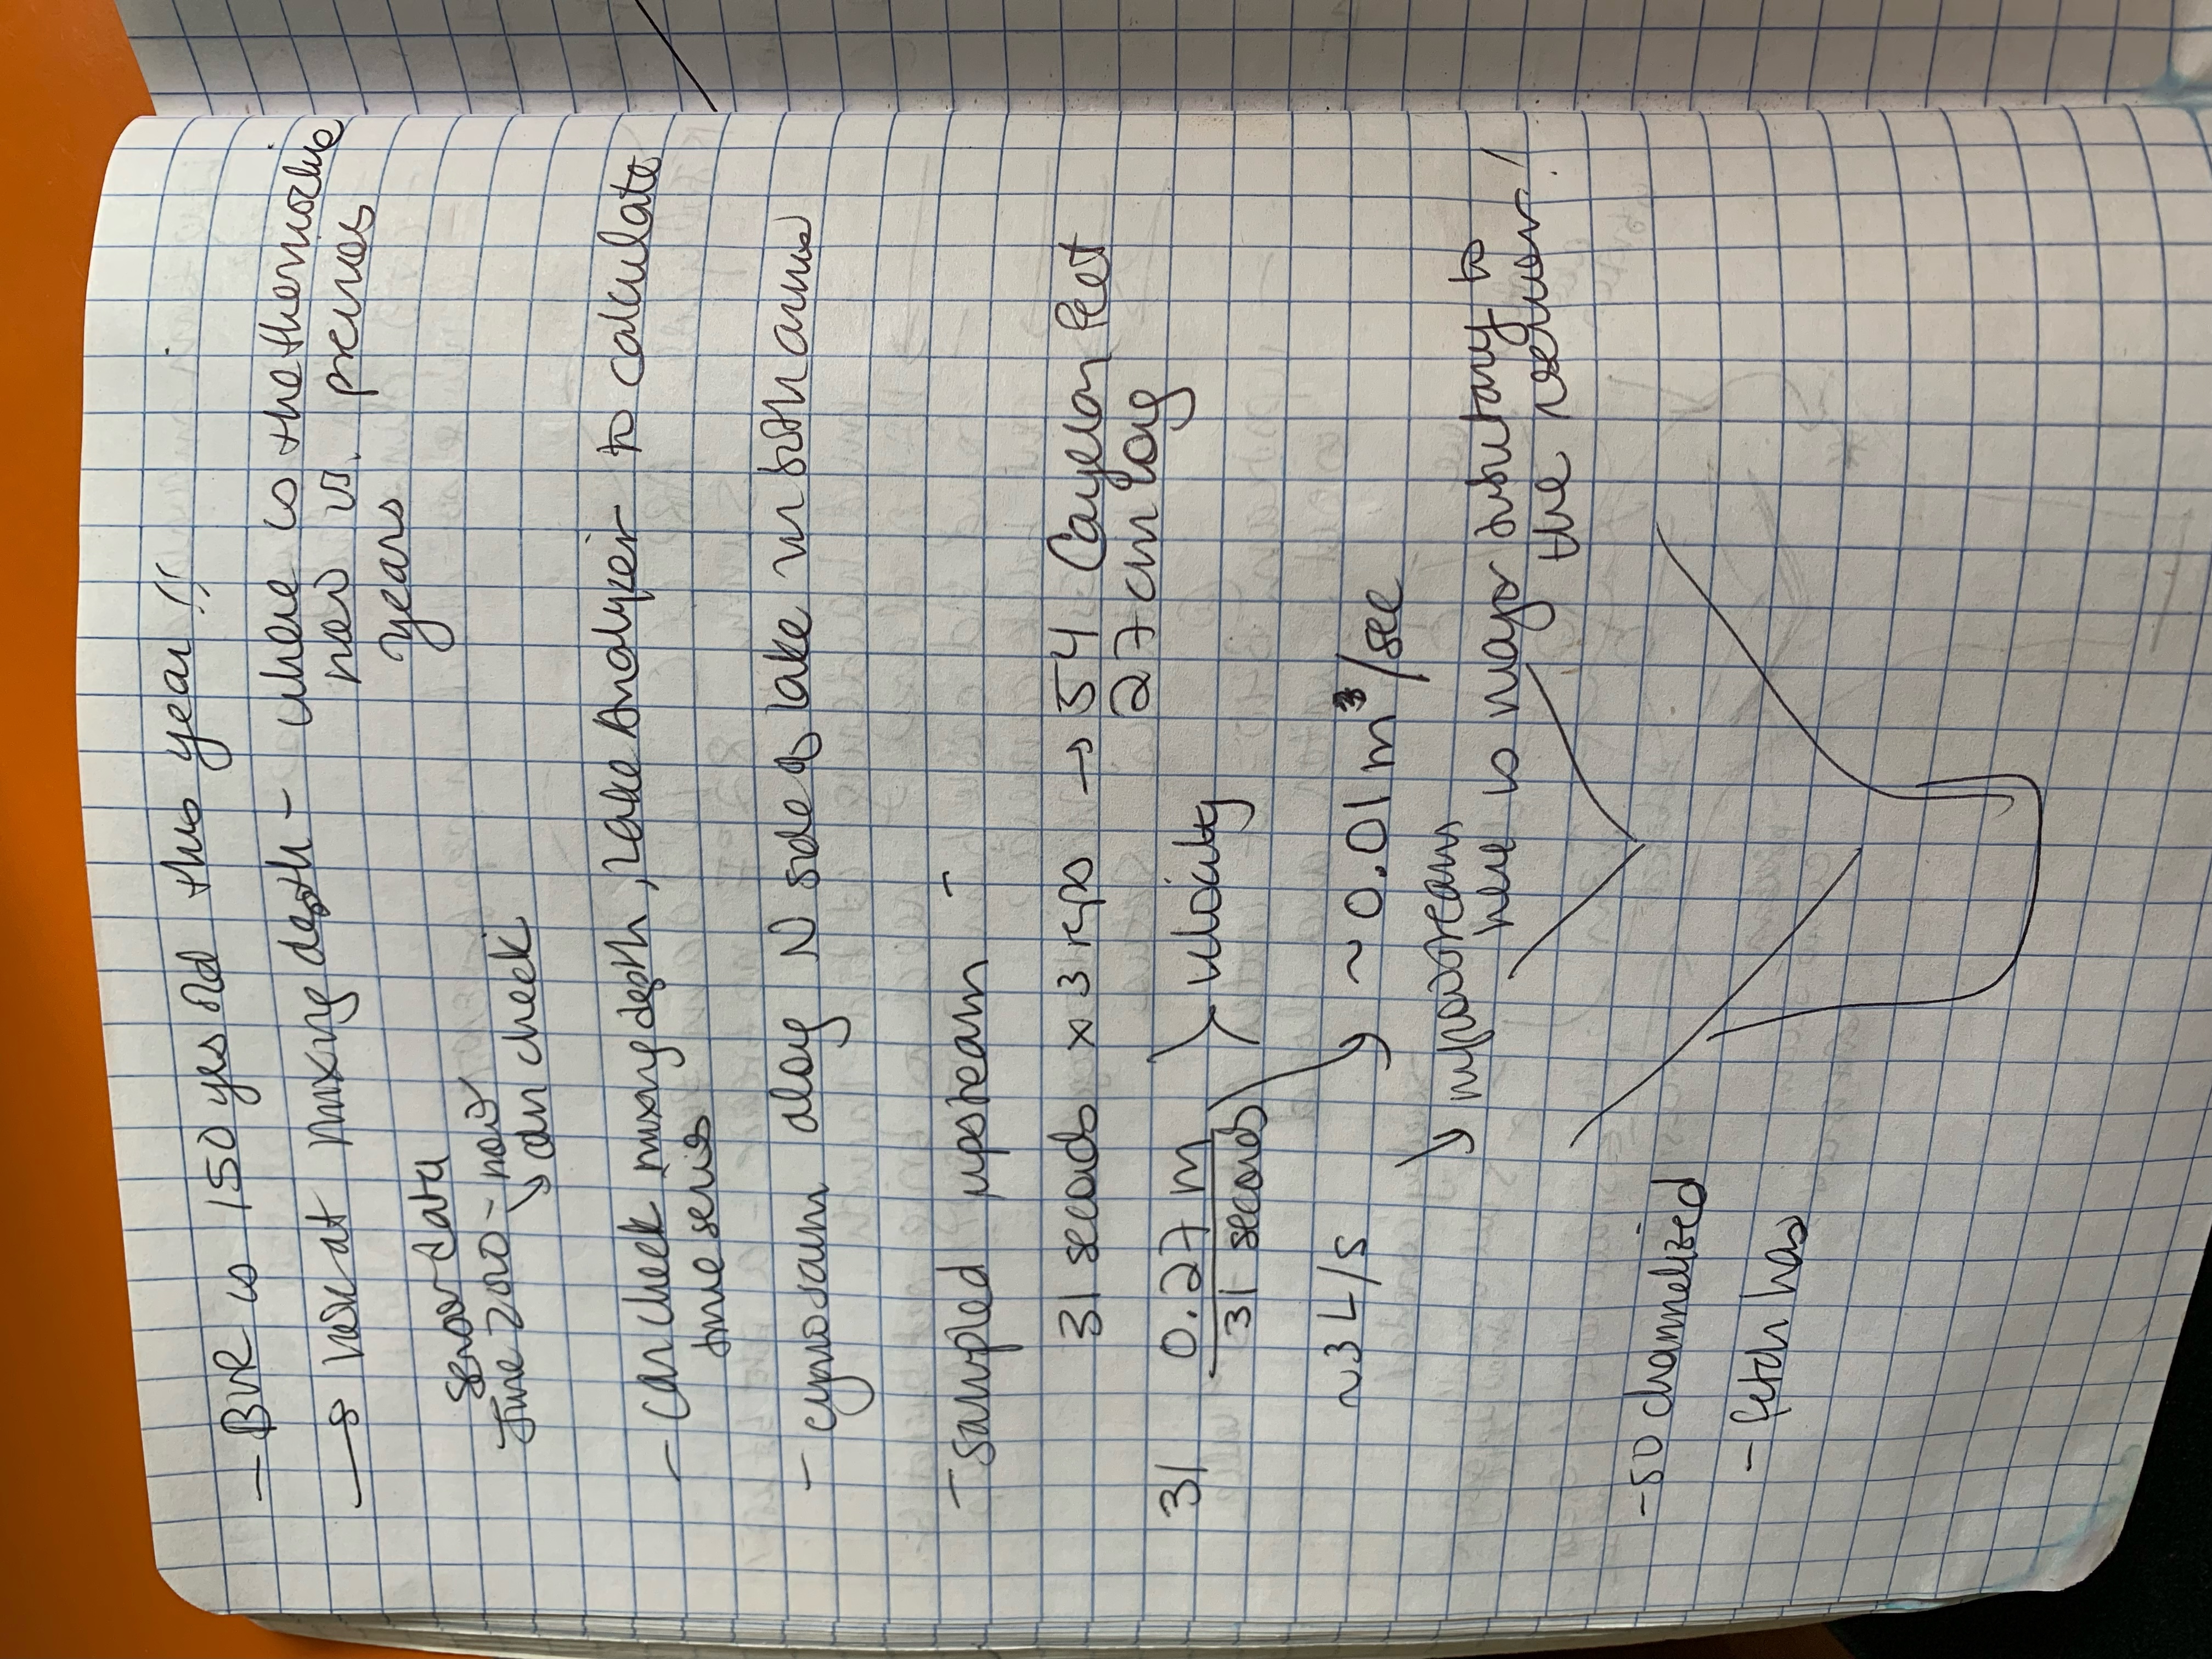 - BVR is 150 yrs old this year!!
→ look at mixing depth - where is the thermocline
now vs. previous
years
sensor data
June 2020 - now
↘ can check
- can check mixing depth, Lake Analyzer to calculate
time series
- cyno scum along N side of lake in both arms
- sampled upstream -
31 seconds x 3 reps → 54 Cayelan feet
27 cm long
31 0.27 m
31 seconds
velocity
~3 L/s
~0.01 m³/sec
↘ inflow stream
here is major tributary to
the reservoir!
- so channelized
- fetch has